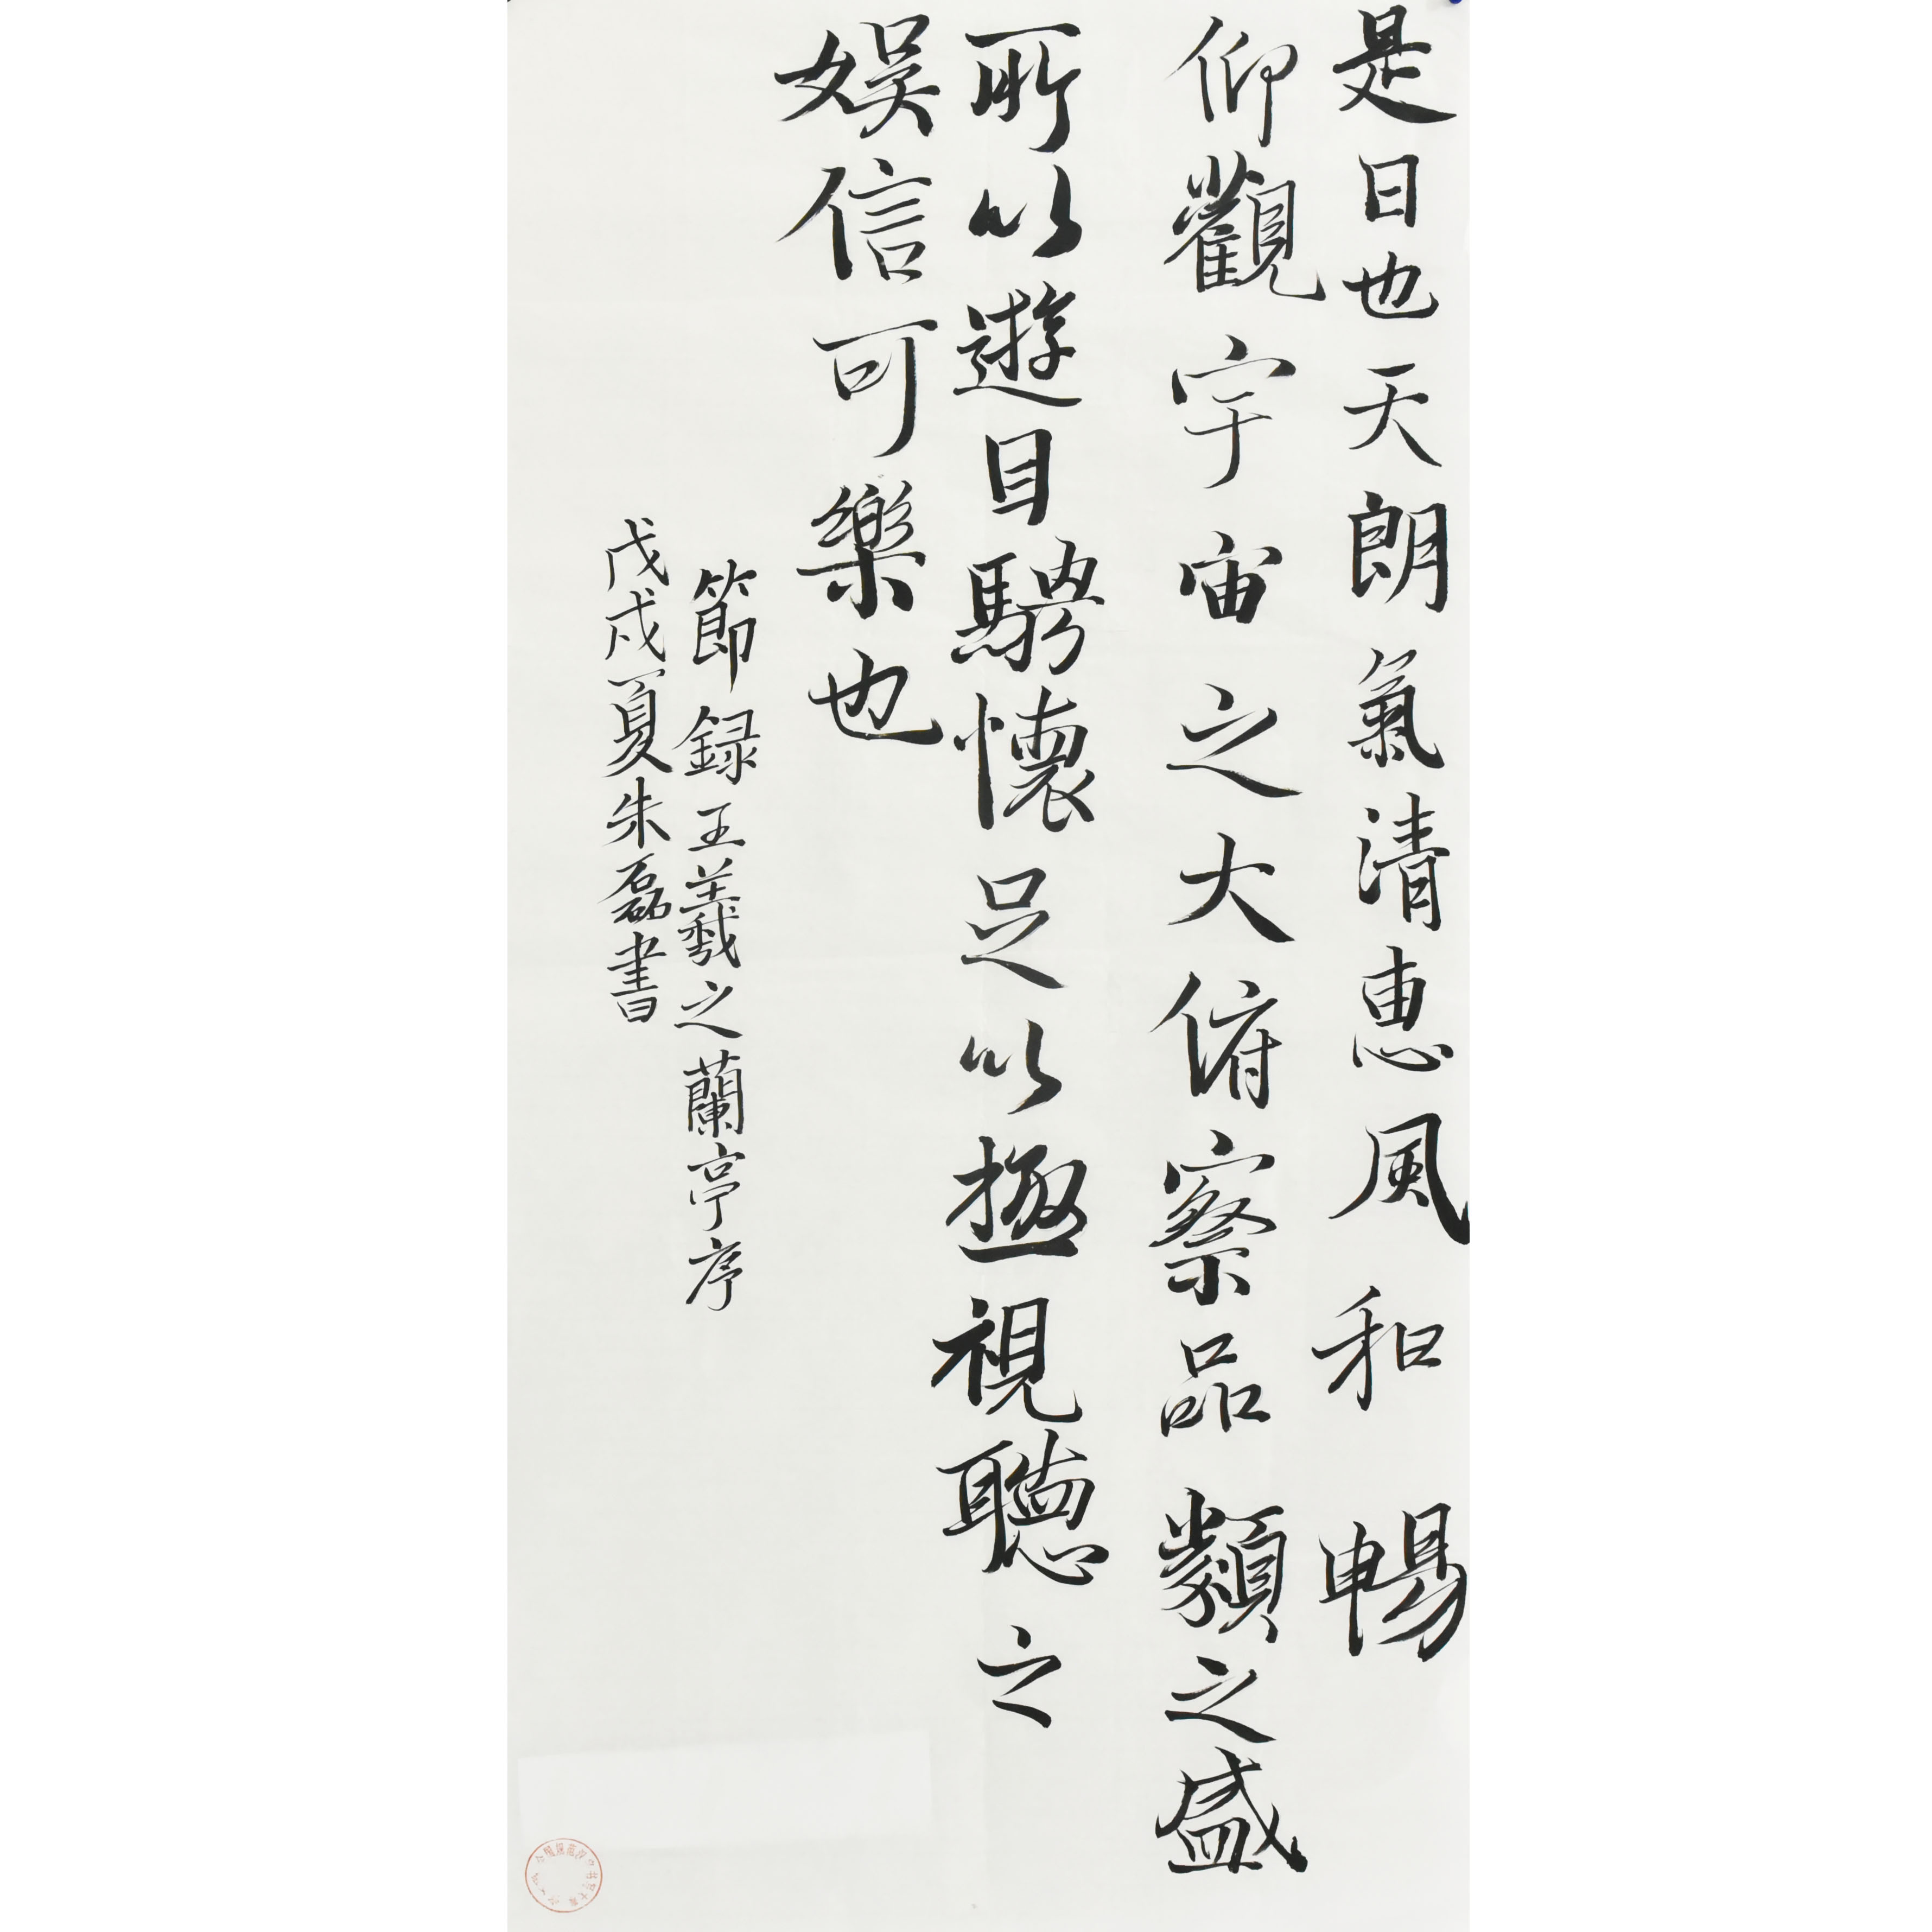 是日也天朗氣清惠風和暢
仰觀宇宙之大俯察品類之盛
所以遊目騁懷足以極視聽之
娛信可樂也
節録王羲之蘭亭序
戊戌夏朱磊書